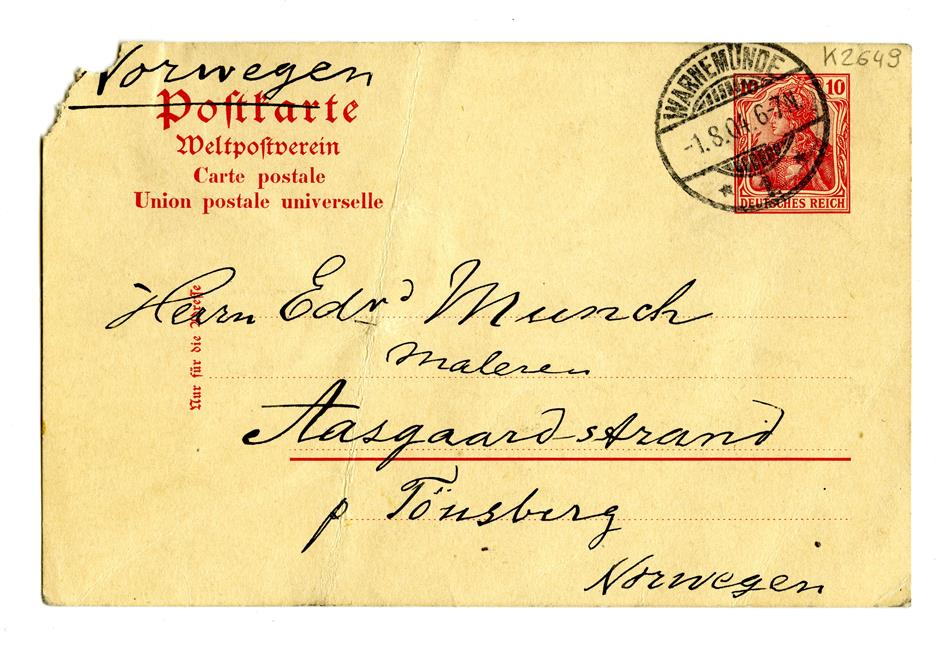 Norwegen
K2649
Postkarte
Weltpostverein
Carte postale
Union postale universelle
WARNEMÜNDE
-1.8.04. 6-7N.
2.
10
10
DEUTSCHES REICH
Nur für die Adresse
Herrn Edvd Munch
Maleren
Aasgaardstrand
p Tönsberg
Norwegen